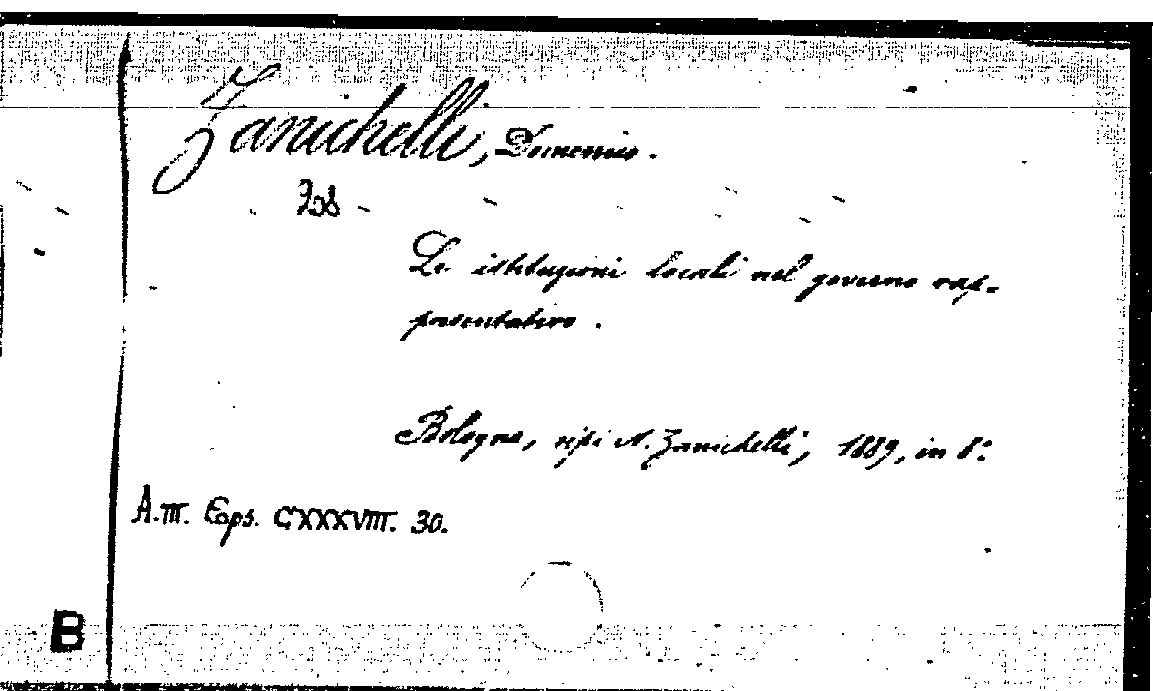 Zanichelli, Domenico.
208
Le istituzioni locali nel governo rap-
presentativo.
Bologna, tipi N. Zanichelli, 1889, in 8.°
A.III. Caps. CXXXVIII. 30.
B